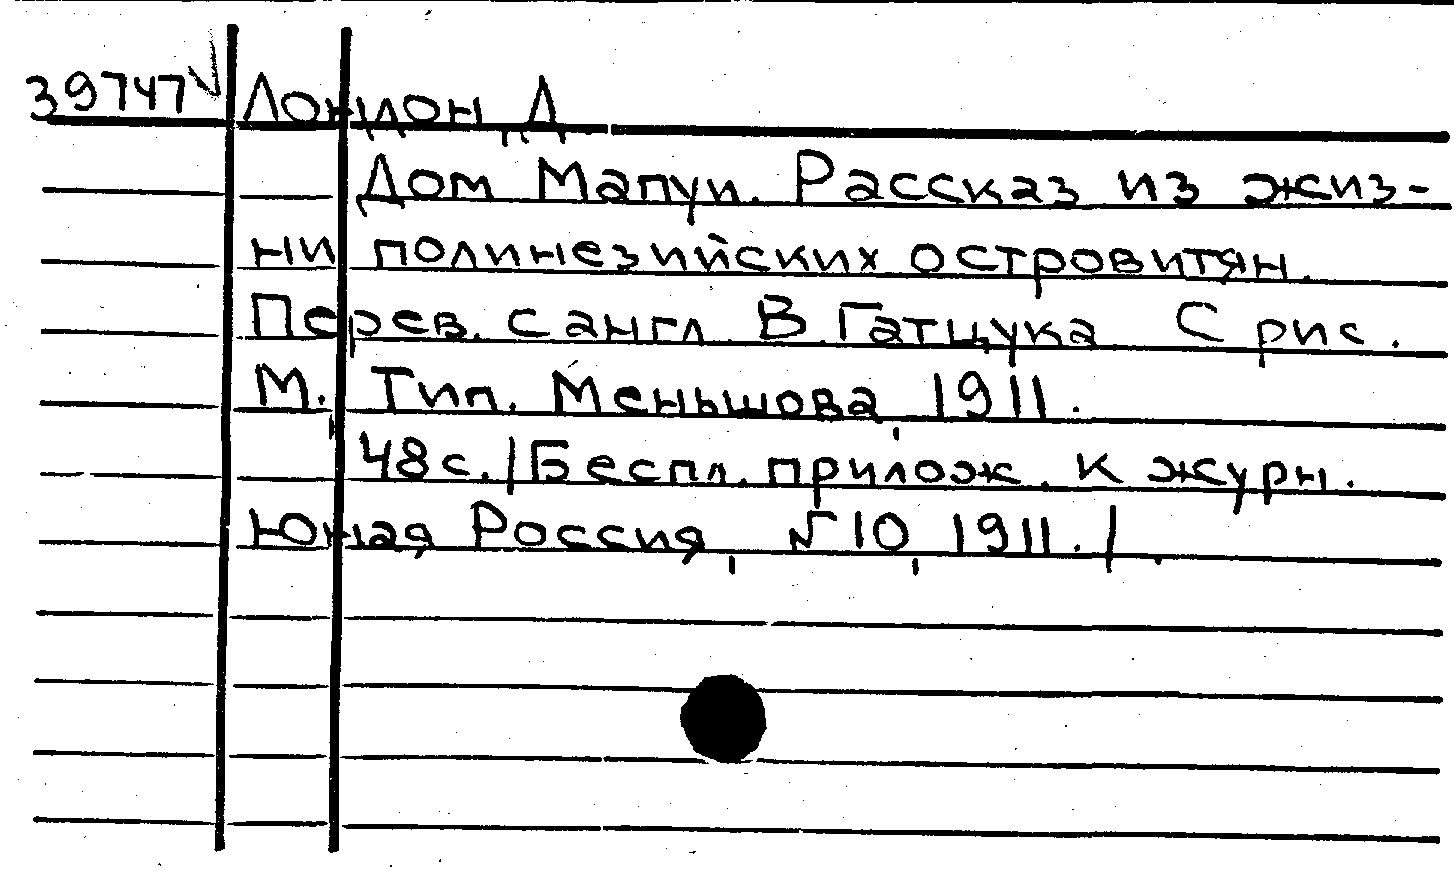 39747 Лондон, Д.
Дом Мапуи. Рассказ из жиз-
ни полинезийских островитян.
Перев. с англ. В. Гатцука. С рис.
М. Тип. Меньшова, 1911.
48 с. /Беспл. прилож. к журн.
Юная Россия, № 10, 1911./.